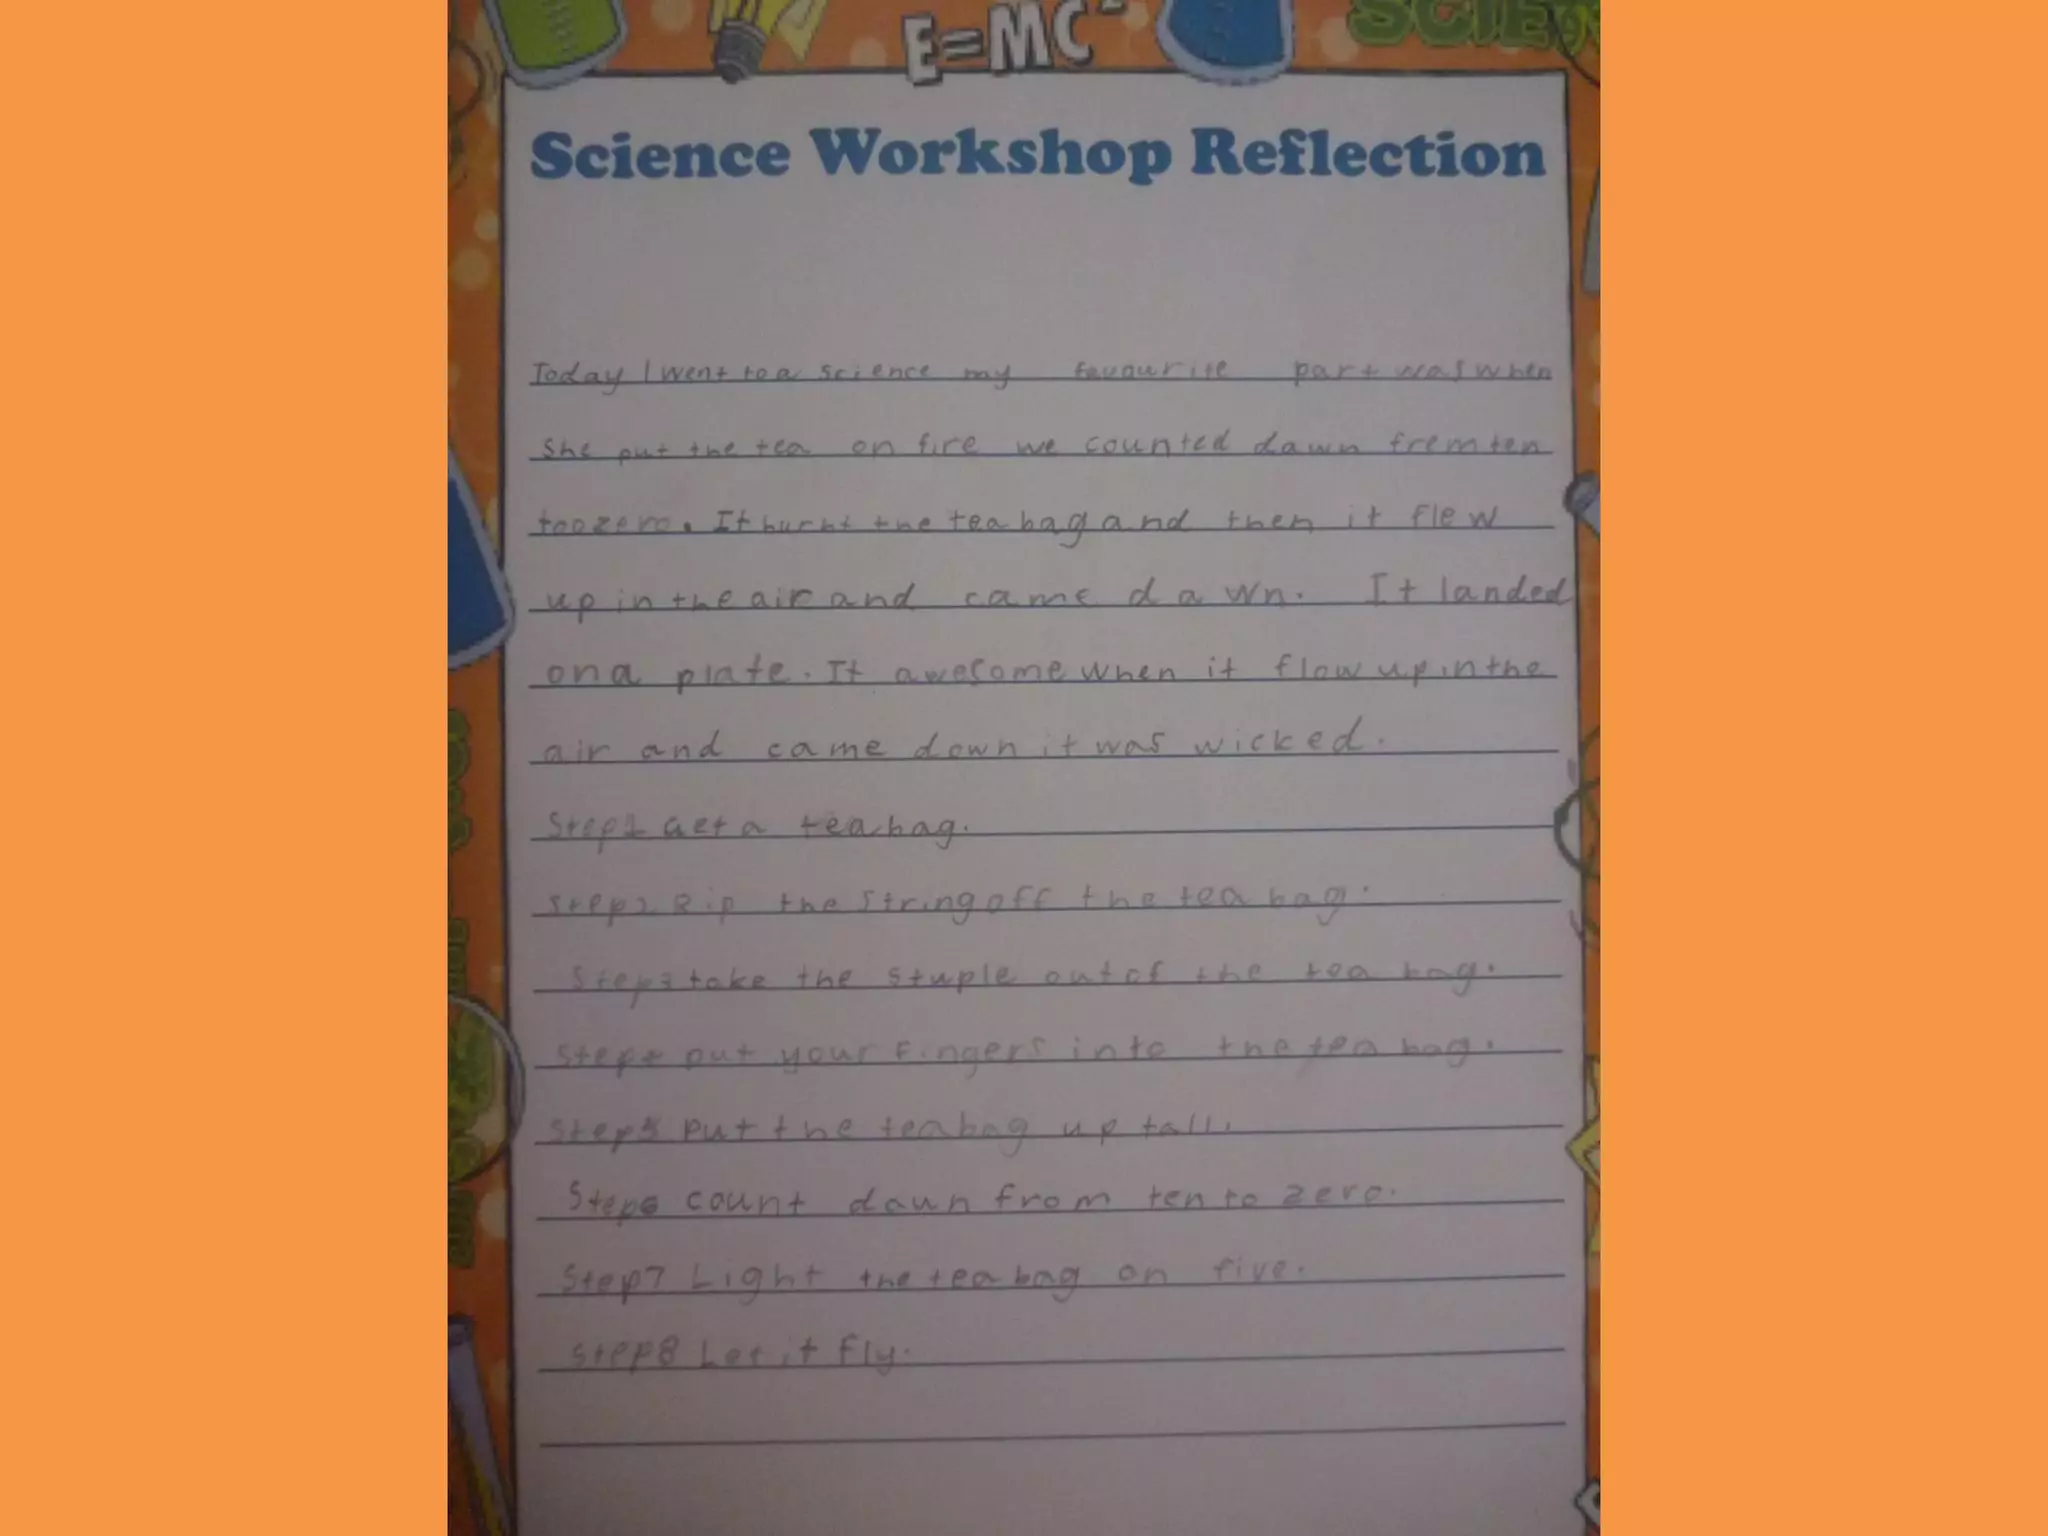 E=MC²
SCIE
Science Workshop Reflection
Today I went to a science my favourite part was when
She put the tea on fire we counted dawn frem ten
too zero. It burnt the tea bag and then it flew
up in the air and came dawn. It landed
on a plate. It awesome when it flow up in the
air and came down it was wicked.
Step1 Get a teabag.
Step2 Rip the string off the tea bag.
Step3 take the stuple out of the tea bag.
Step4 put your fingers into the tea bag.
Step5 put the teabag up tall.
Step6 count daun from ten to zero.
Step7 Light the tea bag on five.
Step8 Let it fly.